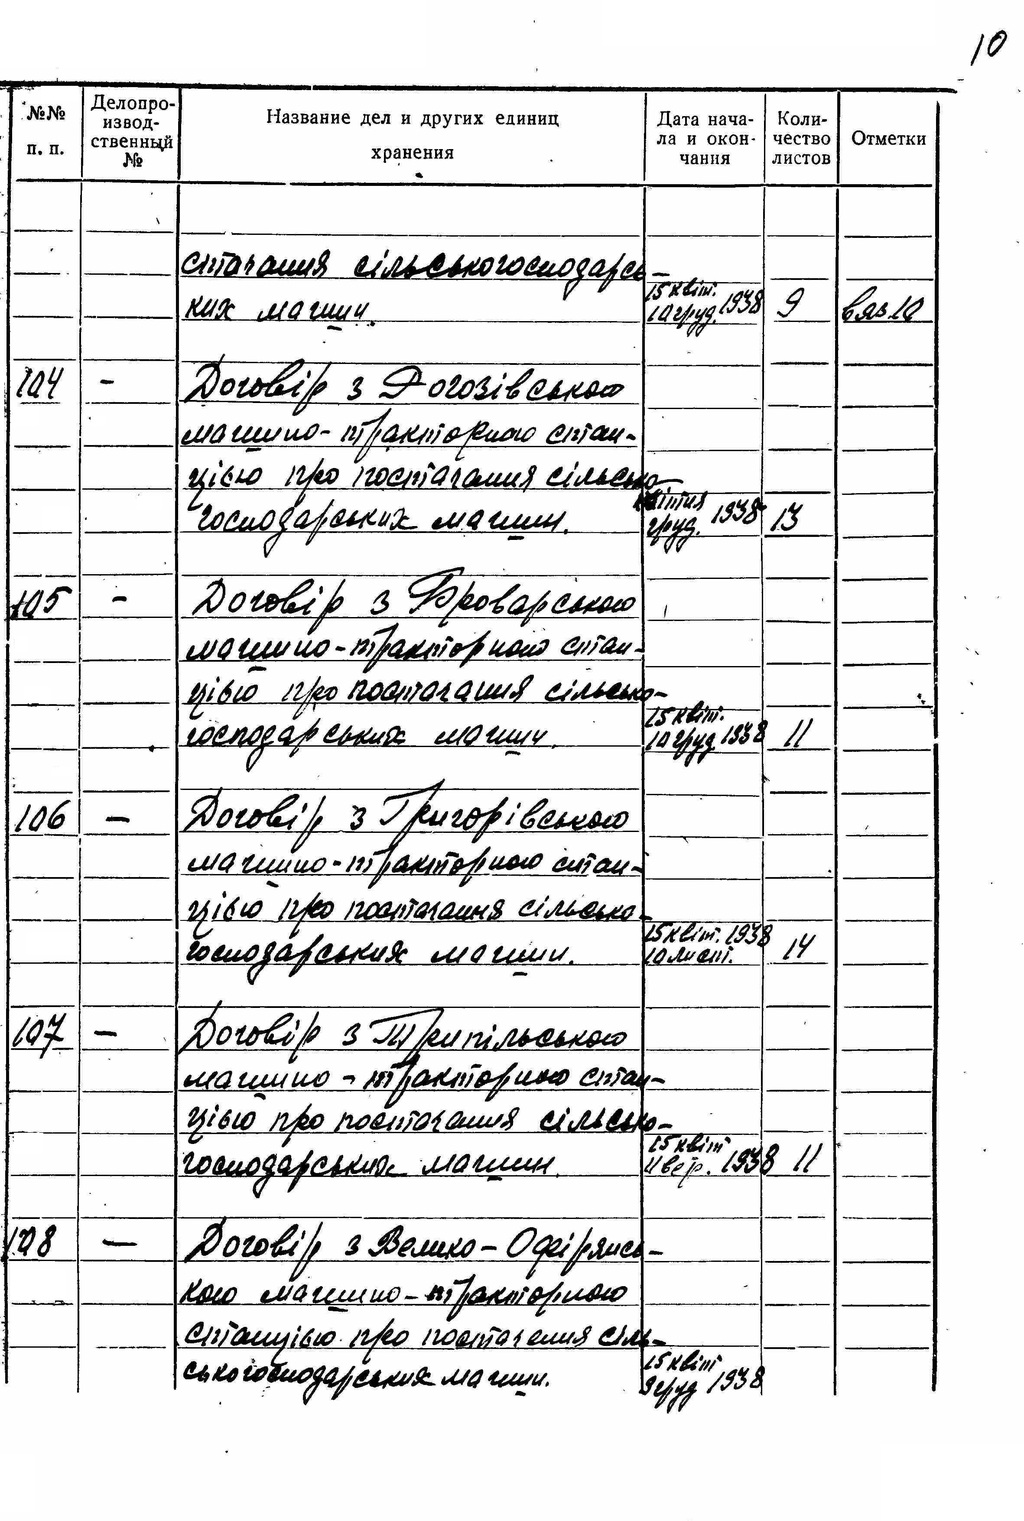 10
№№ п. п.
Делопро-
извод-
ственный
№
Название дел и других единиц
хранения
Дата нача-
ла и окон-
чания
Коли-
чество
листов
Отметки
стачання сільськогосподарсь-
ких машин.
15 квіт.
10 груд. 1938
9
104
-
Договір з Рогозівською
машино-тракторною стан-
цією про постачання сільсько-
господарських машин.
квітня
груд. 1938
13
105
-
Договір з Броварською
машино-тракторною стан-
цією про постачання сільсько-
господарських машин.
15 квіт.
10 груд 1938
11
106
-
Договір з Григорівською
машино-тракторною стан-
цією про постачання сільсько-
господарських машин.
15 квіт. 1938
10 лист.
14
107
-
Договір з Трипільською
машино-тракторною стан-
цією про постачання сільсько-
господарських машин.
15 квіт
11 вер. 1938
11
108
-
Договір з Велико-Офірянсь-
кою машино-тракторною
станцією про постачання сіль-
ськогосподарських машин.
15 квіт
9 груд 1938